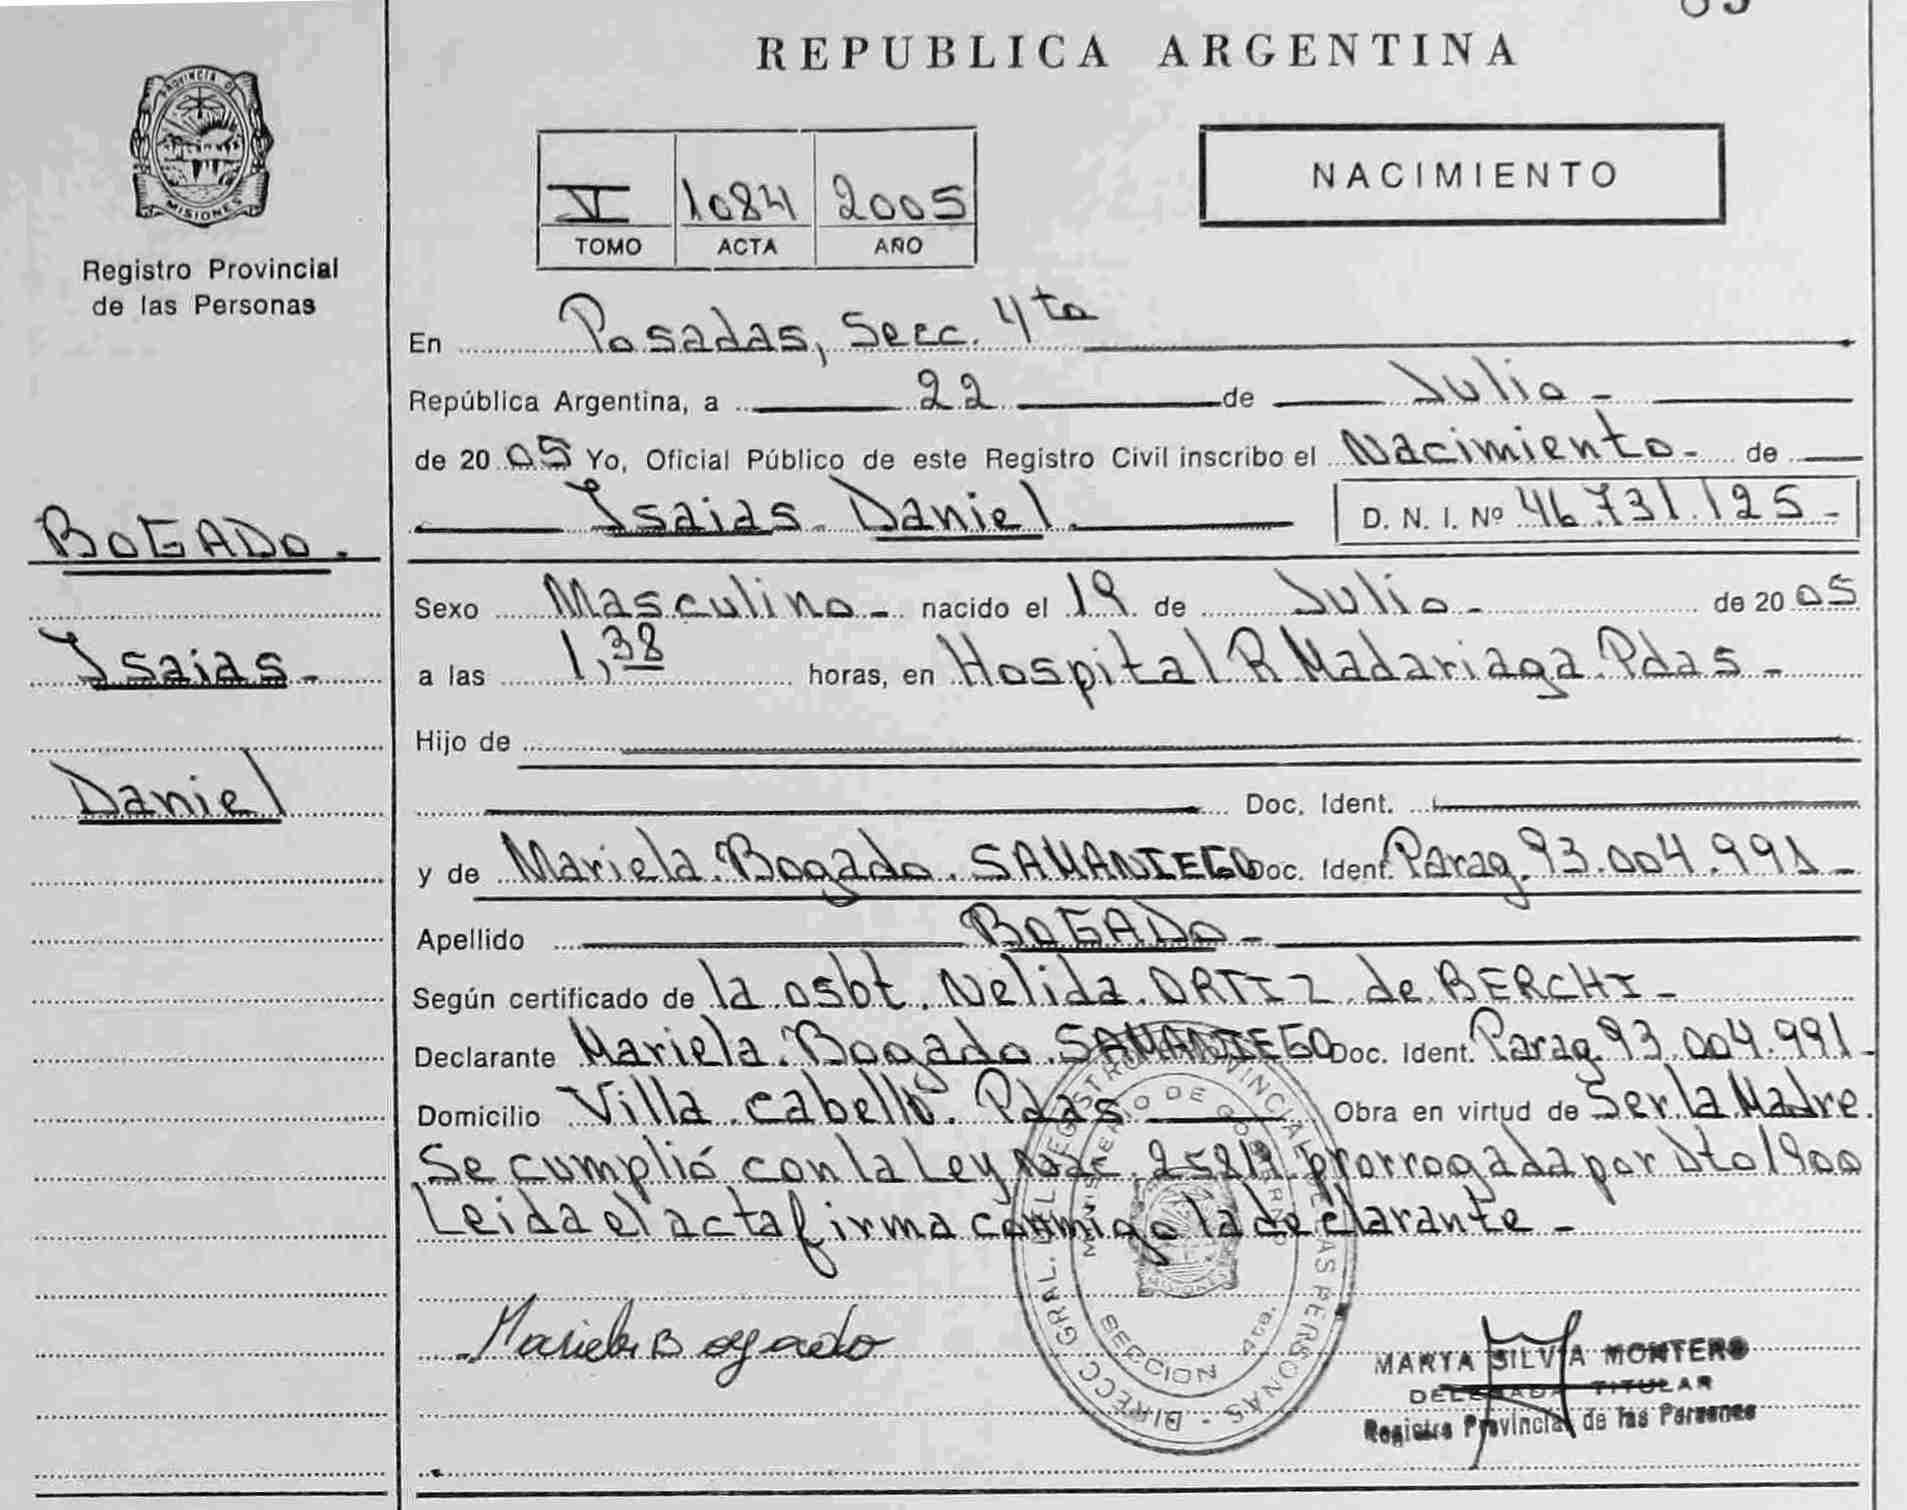 REPUBLICA ARGENTINA
PROVINCIA DE
MISIONES
Registro Provincial
de las Personas
NACIMIENTO
V 1084 2005
TOMO ACTA AÑO
En Posadas, Secc. 4ta
República Argentina, a 22 de Julio -
de 20 05 Yo, Oficial Público de este Registro Civil inscribo el Nacimiento - de
Isaias - Daniel. D. N. I. Nº 46.731.125 -
BOGADO.
Sexo Masculino - nacido el 19 de Julio - de 20 05
Isaias -
a las 1,38 horas, en Hospital R Madariaga. Pdas -
Hijo de
Daniel
Doc. Ident.
y de Mariela. Bogado. SAMANIEGO Doc. Ident. Parag. 93.004.991 -
Apellido BOGADO -
Según certificado de la osbt. Nelida. ORTIZ de BERCHI -
Declarante Mariela. Bogado. SAMANIEGO Doc. Ident. Parag 93.004.991 -
Domicilio Villa cabello. Pdas Obra en virtud de Ser la Madre.
Se cumplió con la Ley Nac. prorrogada por Dto 1900
Leida el acta firma conmigo la declarante -
Mariela Bogado
DIRECC. GRAL. DEL REGISTRO PROVINCIAL DE LAS PERSONAS -
MINISTERIO DE GOBIERNO
MISIONES
SECCION 4ta.
MARTA SILVIA MONTERO
DELEGADA TITULAR
Registro Provincial de las Personas